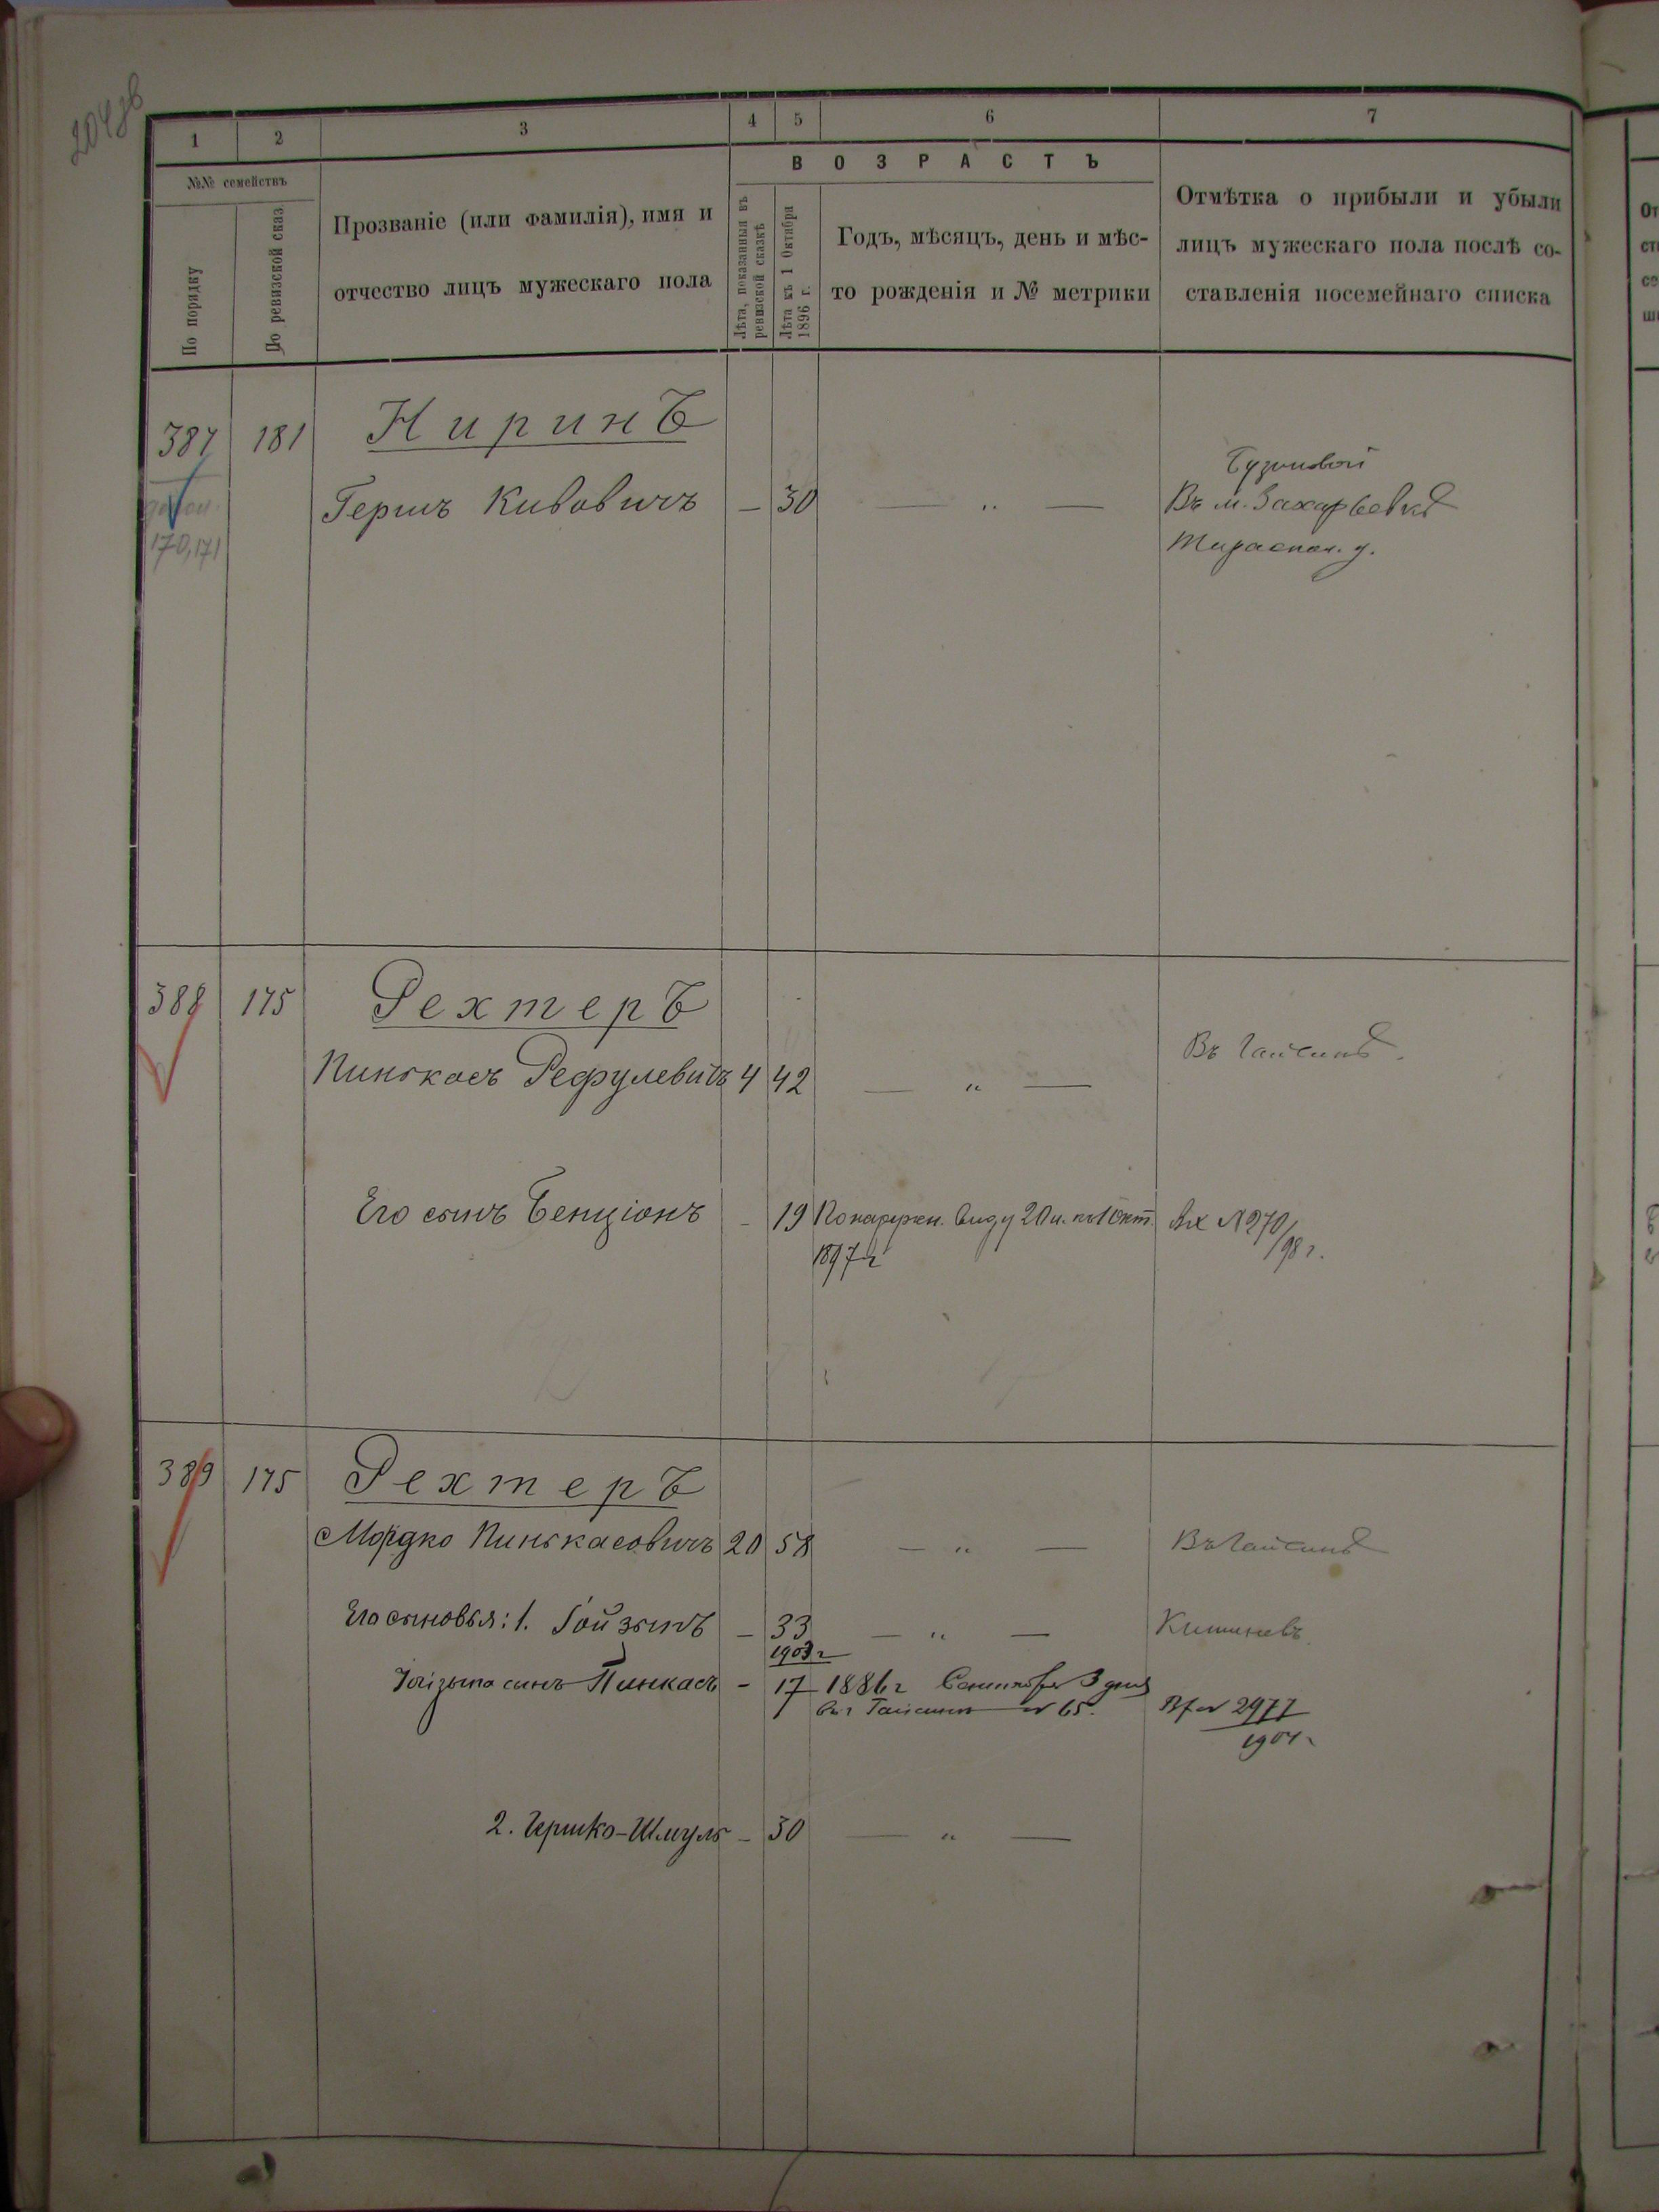 1 2 3 4 5 6 7
№№ семействъ
По порядку
По ревизской сказ
Прозваніе (или фамилія), имя и
отчество лицъ мужескаго пола
ВОЗРАСТЪ
Лѣта, показанныя въ
ревизской сказкѣ
Лѣта къ 1 Октября
1896 г.
Годъ, мѣсяцъ, день и мѣс-
то рожденія и № метрики
Отмѣтка о прибыли и убыли
лицъ мужескаго пола послѣ со-
ставленія посемейнаго списка
387 181 Ниринъ
Гершъ Кивовичъ – 30 — „ — Въ м. Захарьевкѣ
170,171
Тираспол. у.
388 175 Рехтеръ
Пинькасъ Рефулевичъ 4 42 — „ — Въ Гайсинѣ.
Его сынъ Бенціонъ – 19 По наружн. виду 20 л. къ 1 Окт. Вх №270/98 г.
1897 г
389 175 Рехтеръ
Мордко Пинькасовичъ 20 58 — „ — Въ Гайсинѣ
Его сыновья: 1. Іойзыпъ – 33 — „ — Кишиневъ
1903 г
сынъ Пинкасъ – 17 1886 г Сентября 3 дня
въ г Гайсинѣ № 65. 2977
1904
2. Гершко-Шмуль – 30 — „ —